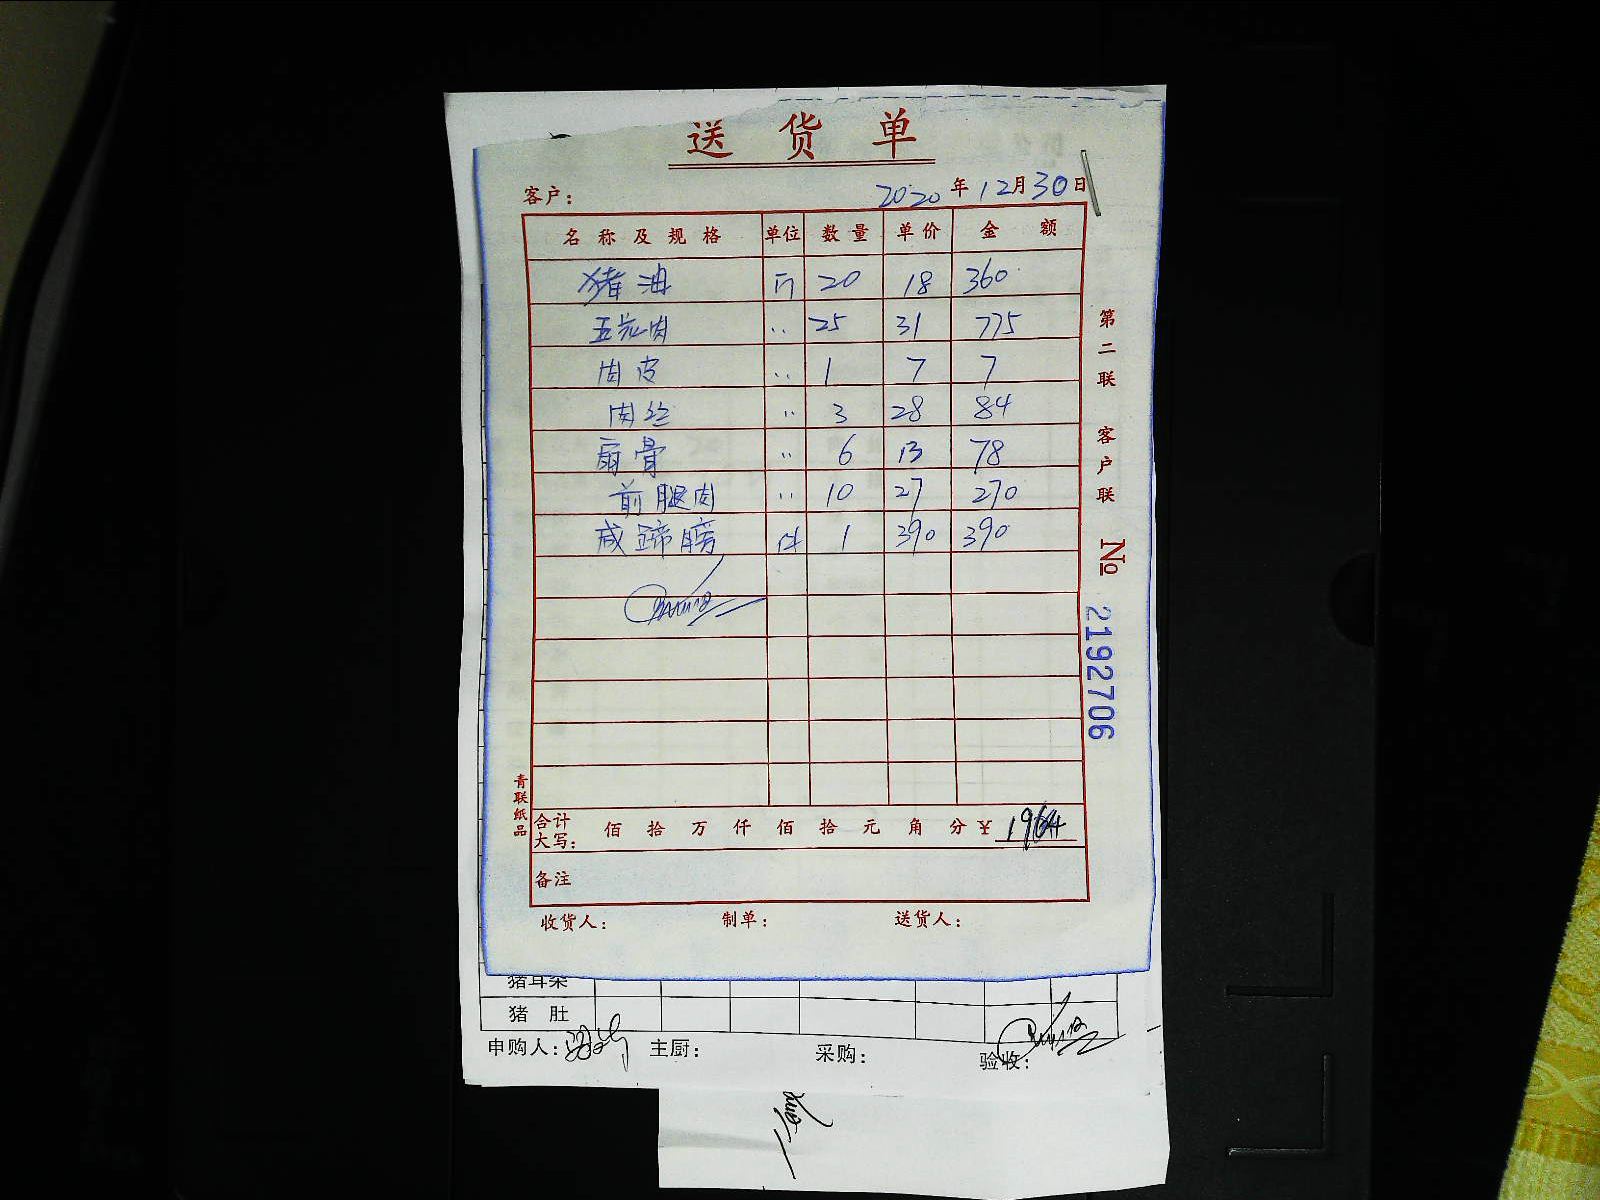 送货单
客户： 2020年12月30日
名称及规格 单位 数量 单价 金额
猪油 斤 20 18 360
五花肉 〃 25 31 775
肉皮 〃 1 7 7
肉丝 〃 3 28 84
扇骨 〃 6 13 78
前腿肉 〃 10 27 270
咸蹄膀 件 1 390 390
合计大写： 佰拾万仟佰拾元角分 ¥ 1964
备注
收货人： 制单： 送货人：
第二联 客户联 № 2192706
青联纸品
猪耳朵
猪肚
申购人： 主厨： 采购： 验收：